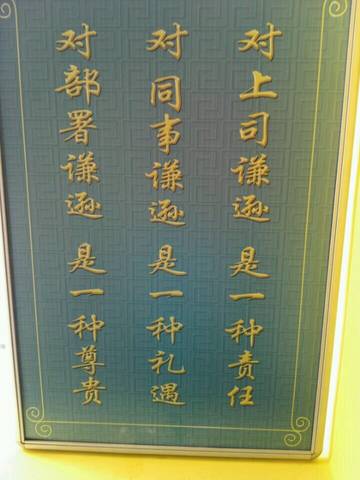 对上司谦逊 是一种责任
对同事谦逊 是一种礼遇
对部署谦逊 是一种尊贵